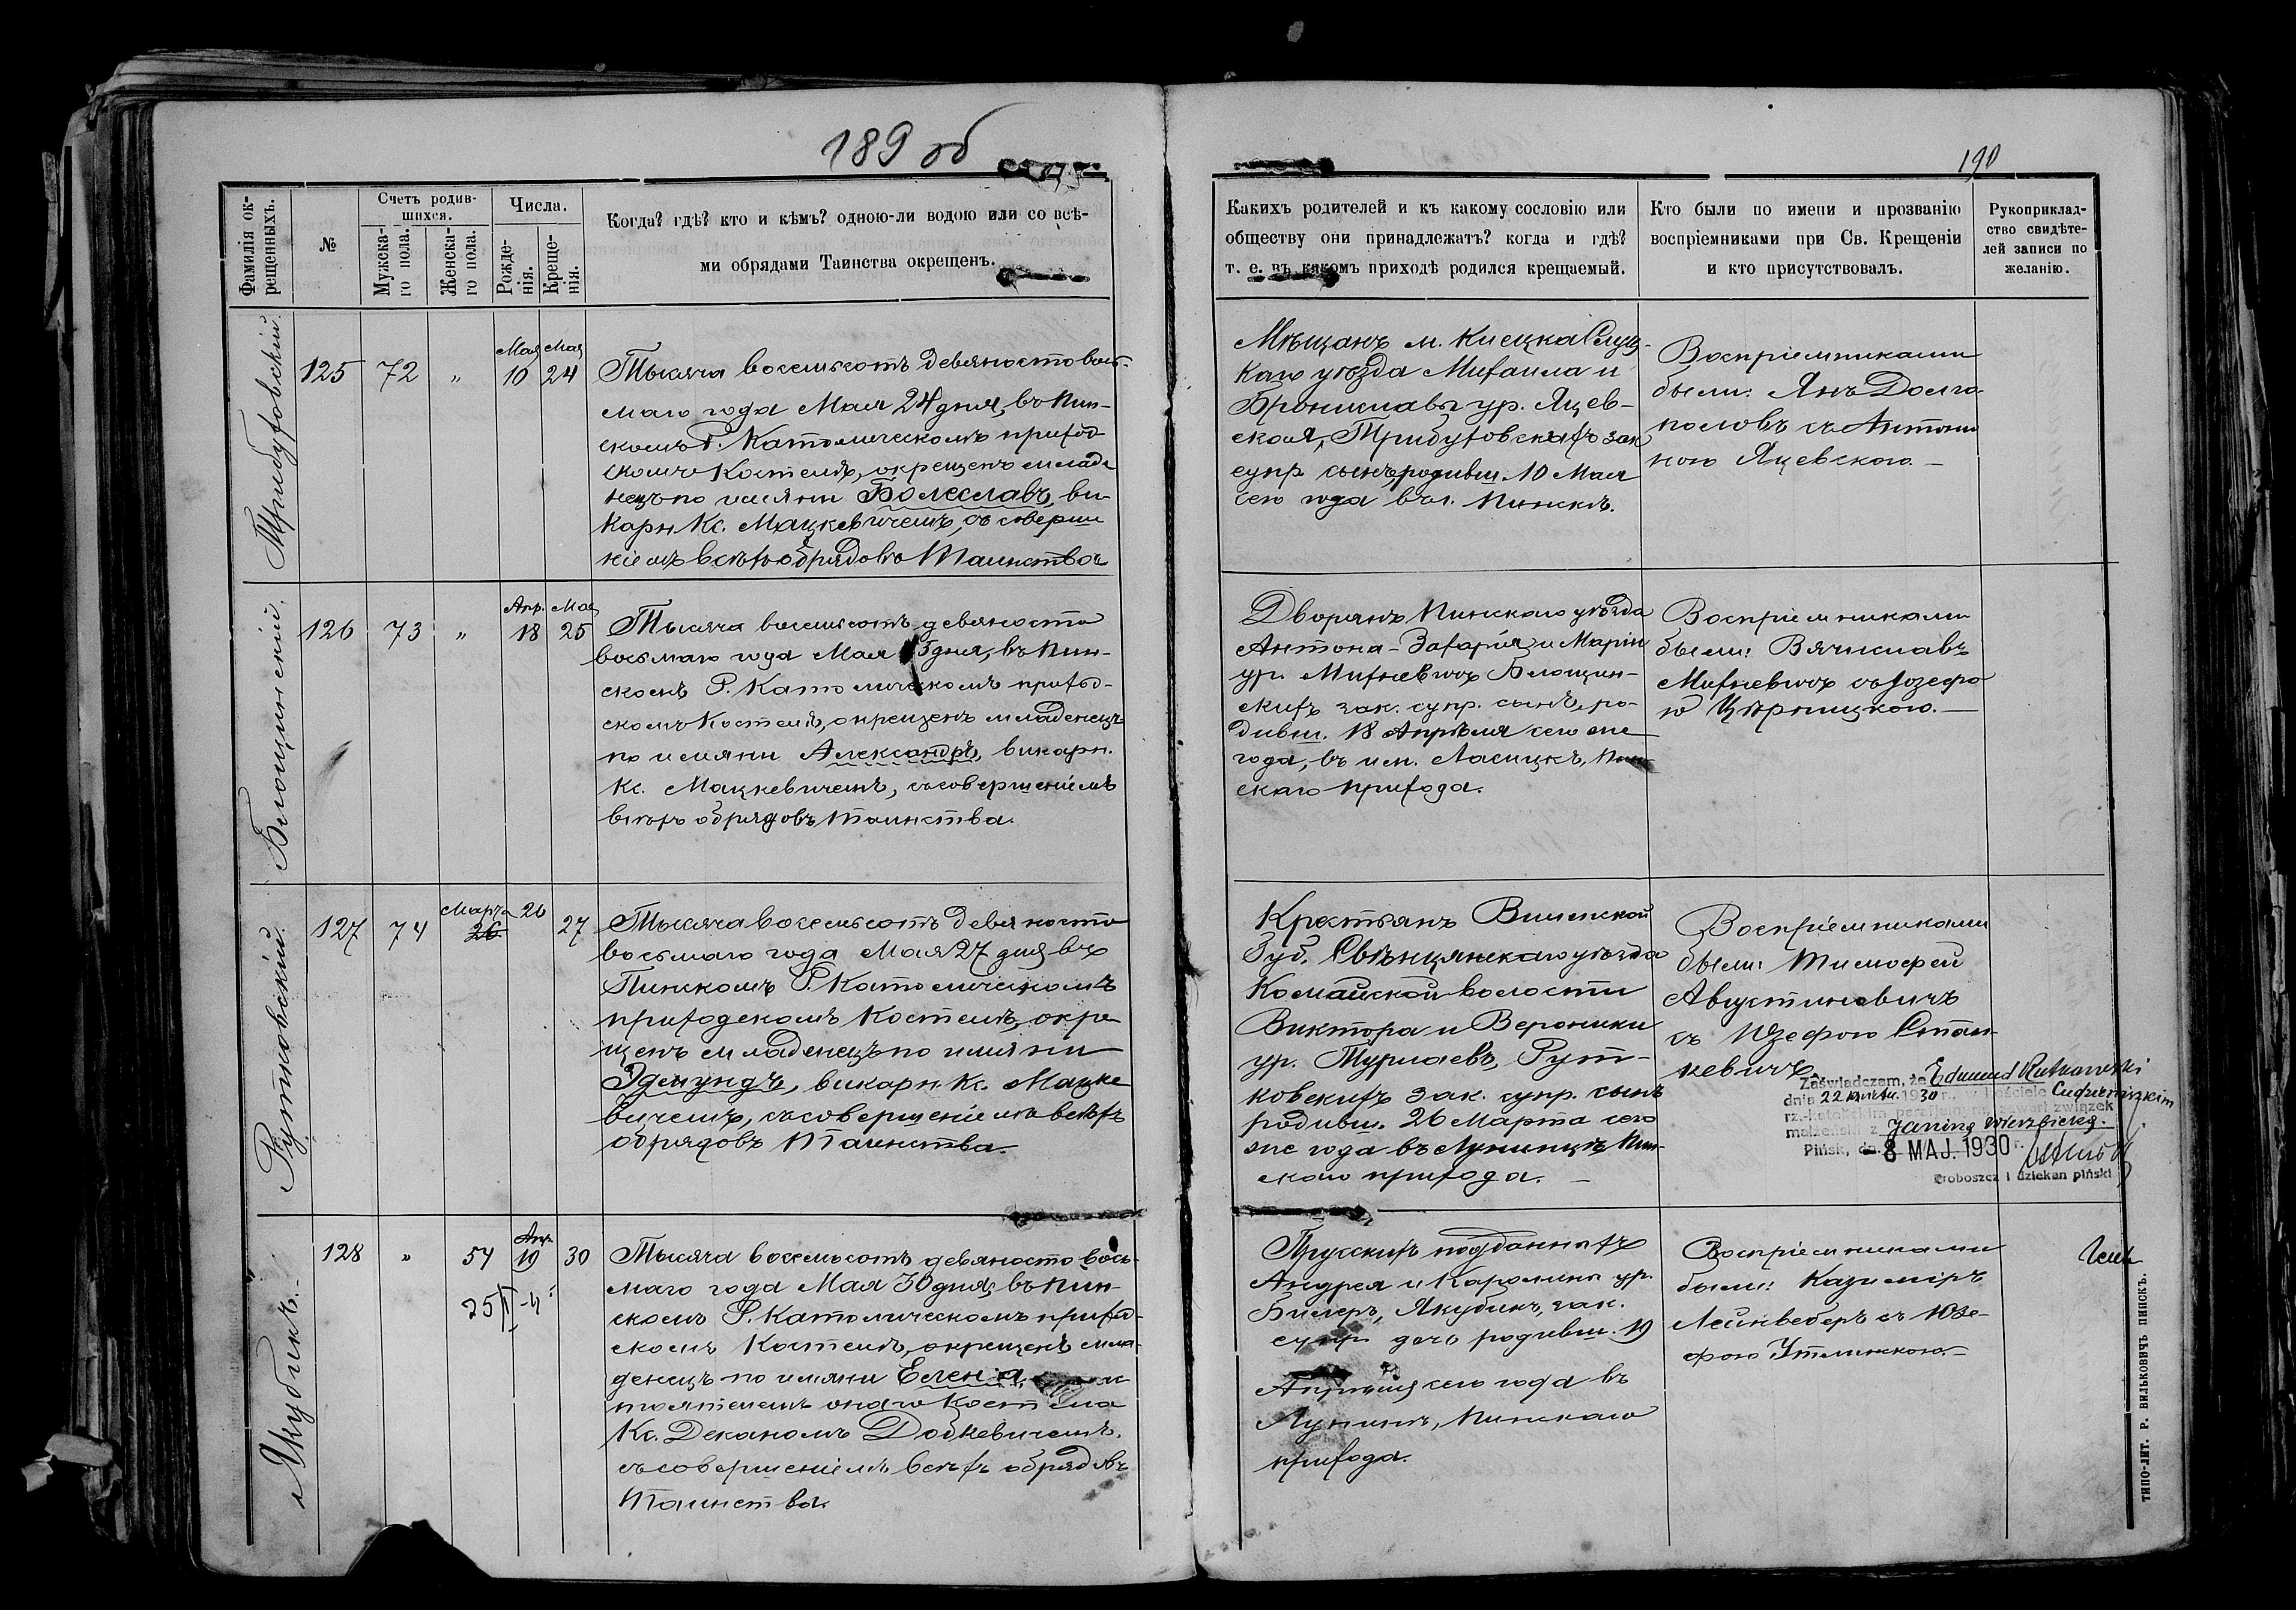 189 об
190
Фамилія окрещенныхъ.
№
Счетъ родившихся.
Мужскаго пола.
Женскаго пола.
Числа.
Рожденія.
Крещенія.
Когда? гдѣ? кто и кѣмъ? одною-ли водою или со всѣ-
ми обрядами Таинства окрещенъ.
Какихъ родителей и къ какому сословію или
обществу они принадлежатъ? когда и гдѣ?
т. е. въ какомъ приходѣ родился крещаемый.
Кто были по имени и прозванію
воспріемниками при Св. Крещеніи
и кто присутствовалъ.
Рукоприклад-
ство свидѣте-
лей записи по
желанію.
Трибуховскій.
125 72 „ Мая 10 Мая 24
Тысяча восемьсотъ девяносто вось-
маго года Мая 24 дня, въ Пин-
скомъ Р. Католическомъ приход
скомъ Костелѣ, окрещенъ младе
нецъ по имяни Болеславъ, ви-
карн Кс. Мацкевичемъ, съ соверше
ніемъ всѣхъ обрядовъ Таинства
Мѣщанъ м. Клецка Слуц-
каго уѣзда Михаила и
Брониславы ур. Яцев-
ской, Трибуховскихъ зак
супр сынъ, родивш. 10 Мая
сего года въ г. Пинскѣ.
Воспріемниками
были: Янъ Долго
половъ съ Антони
ною Яцевскою. —
Блощинскій.
126 73 „ Апр. 18 Мая 25
Тысяча восемьсотъ девяносто
восьмаго года Мая 25 дня, въ Пин-
скомъ Р. Католическомъ приход-
скомъ Костелѣ, окрещенъ младенецъ
по имяни Александръ, викарн.
Кс. Мацкевичемъ, съ совершеніемъ
всѣхъ обрядовъ Таинства.
Дворянъ Пинскаго уѣзда
Антона-Захарія и Маріи
ур. Михневичъ Блощин-
скихъ зак. супр. сынъ, ро-
дивш. 18 Апрѣля сего же
года, въ им. Ласицкѣ, Пин-
скаго прихода.
Воспріемниками
были: Вячиславъ
Михневичъ съ Іозефо
ю Цѣрпицкою. —
Рутковскій.
127 74 Марта 26 26 27
Тысяча восемьсотъ девяносто
восьмаго года Мая 27 дня въ
Пинскомъ Р. Католическомъ
приходскомъ Костелѣ, окре
щенъ младенецъ по имяни
Эдмундъ, викарн Кс. Мацке
вичемъ, съ совершеніемъ всѣхъ
обрядовъ Таинства.
Крестьянъ Виленской
Губ. Свѣнцянскаго уѣзда
Комайской волости
Виктора и Вероники
ур. Турлаевъ, Рут-
ковскихъ зак. супр. сынъ
родивш. 26 Марта сего
же года въ Лунинцѣ Пин-
скаго прихода. —
Воспріемниками
были: Тимофей
Августиновичъ
съ Юзефою Стан-
кевичъ
Zaświadczam, że Edmund Rutkowski
dnia 22 1930 r., w kościele
rz.-katolickim parafjaln. zawarł związek
małżeński z Janiną Wierzbicką.
Pińsk, dn. - 8 MAJ. 1930 r.
Proboszcz i dziekan piński
Якубикъ.
128 „ 54 Апр. 19 30
Тысяча восемьсотъ девяносто вось-
маго года Мая 30 дня, въ Пин-
скомъ Р. Католическомъ приход-
скомъ Костелѣ, окрещенъ мла-
денецъ по имяни Елена,
тоятелемъ онаго Костела
Кс. Деканомъ Додкевичемъ,
съ совершеніемъ всѣхъ обрядовъ
Таинства.
Прусскихъ подданныхъ
Андрея и Каролины ур.
Билеръ, Якубикъ, зак.
супр. дочь родивш. 19
Апрѣля сего года въ
Лунинѣ, Пинскаго
прихода.
Воспріемниками
были: Казиміръ
Лейнведеръ съ Юзе-
фою Утлинскою. —
ТИПО-ЛИТ. Р. ВИЛЬКОВИЧЪ ПИНСКЪ.